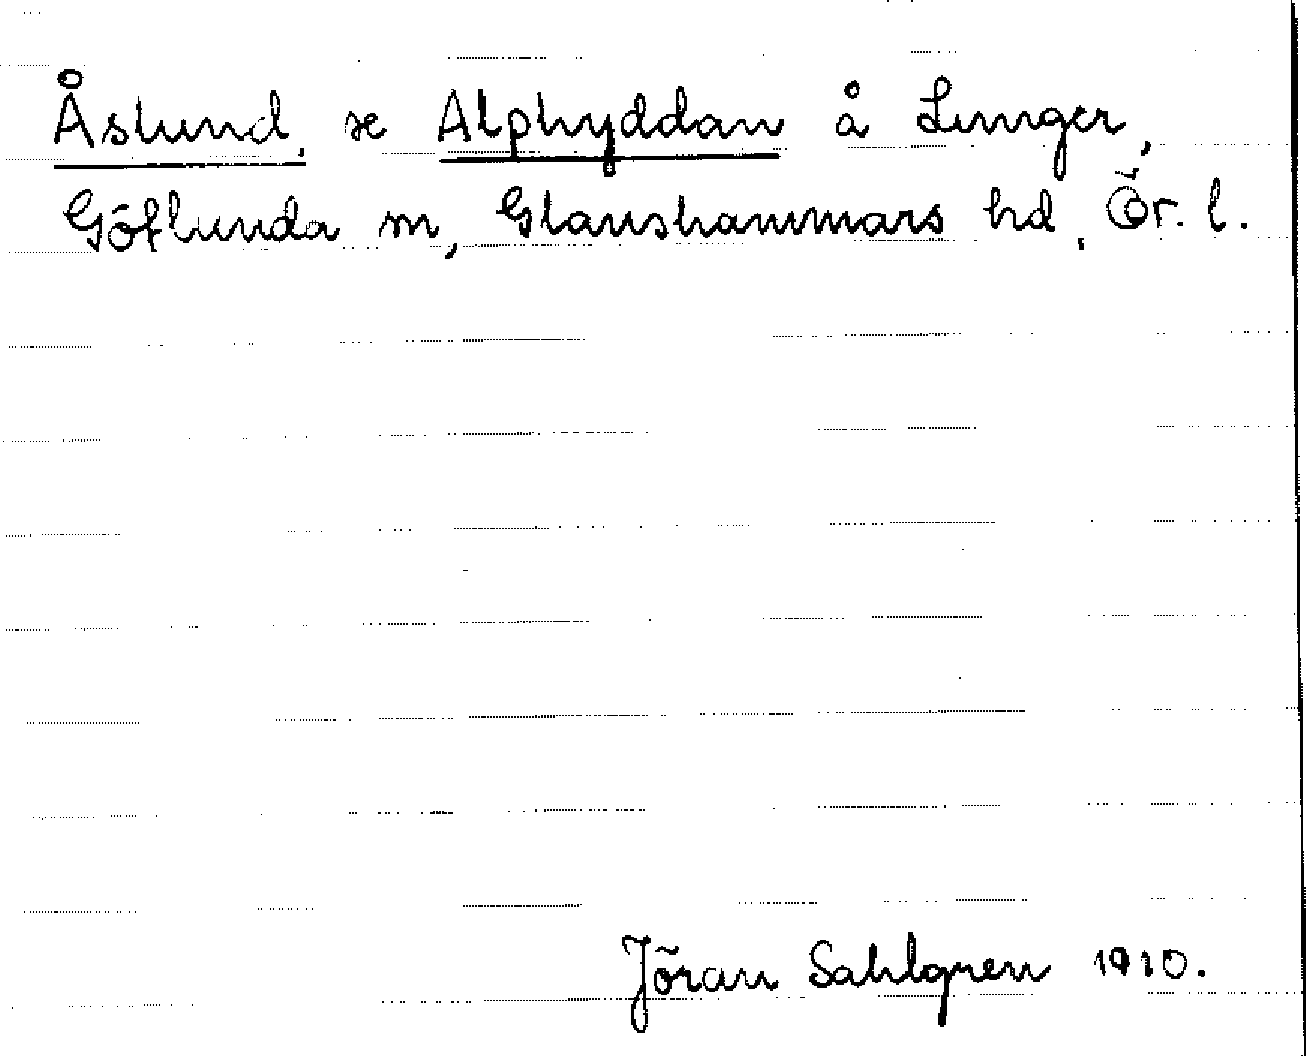 Åslund, se Alphyddan å Limger,
Götlunda sn, Glanshammars hd, Ör. l.
Jöran Sahlgren 1910.